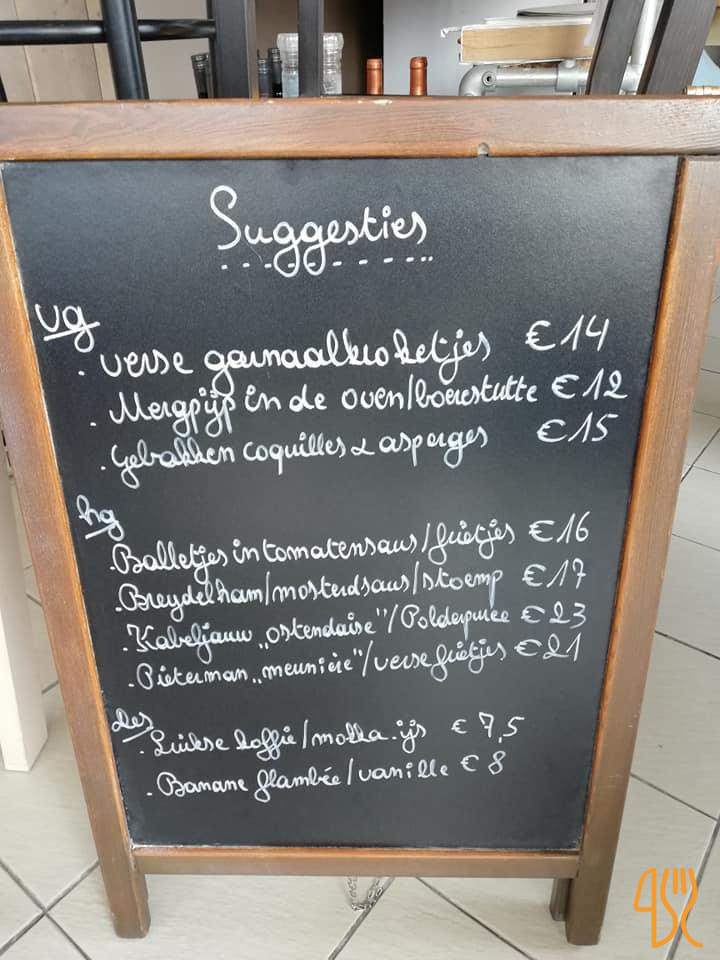 Suggesties
vg
. verse garnaalkroketjes €14
. Mergpijp in de oven/boerestutte €12
. Gebakken coquilles & asperges €15
hg
. Balletjes in tomatensaus/frietjes €16
. Breydelham/mosterdsaus/stoemp €17
. Kabeljauw „ostendaise"/Polderpuree €23
. Pieterman „meunière"/verse frietjes €21
des
. Luikse koffie/mokka.ijs € 7,5
. Banane flambée/vanille € 8